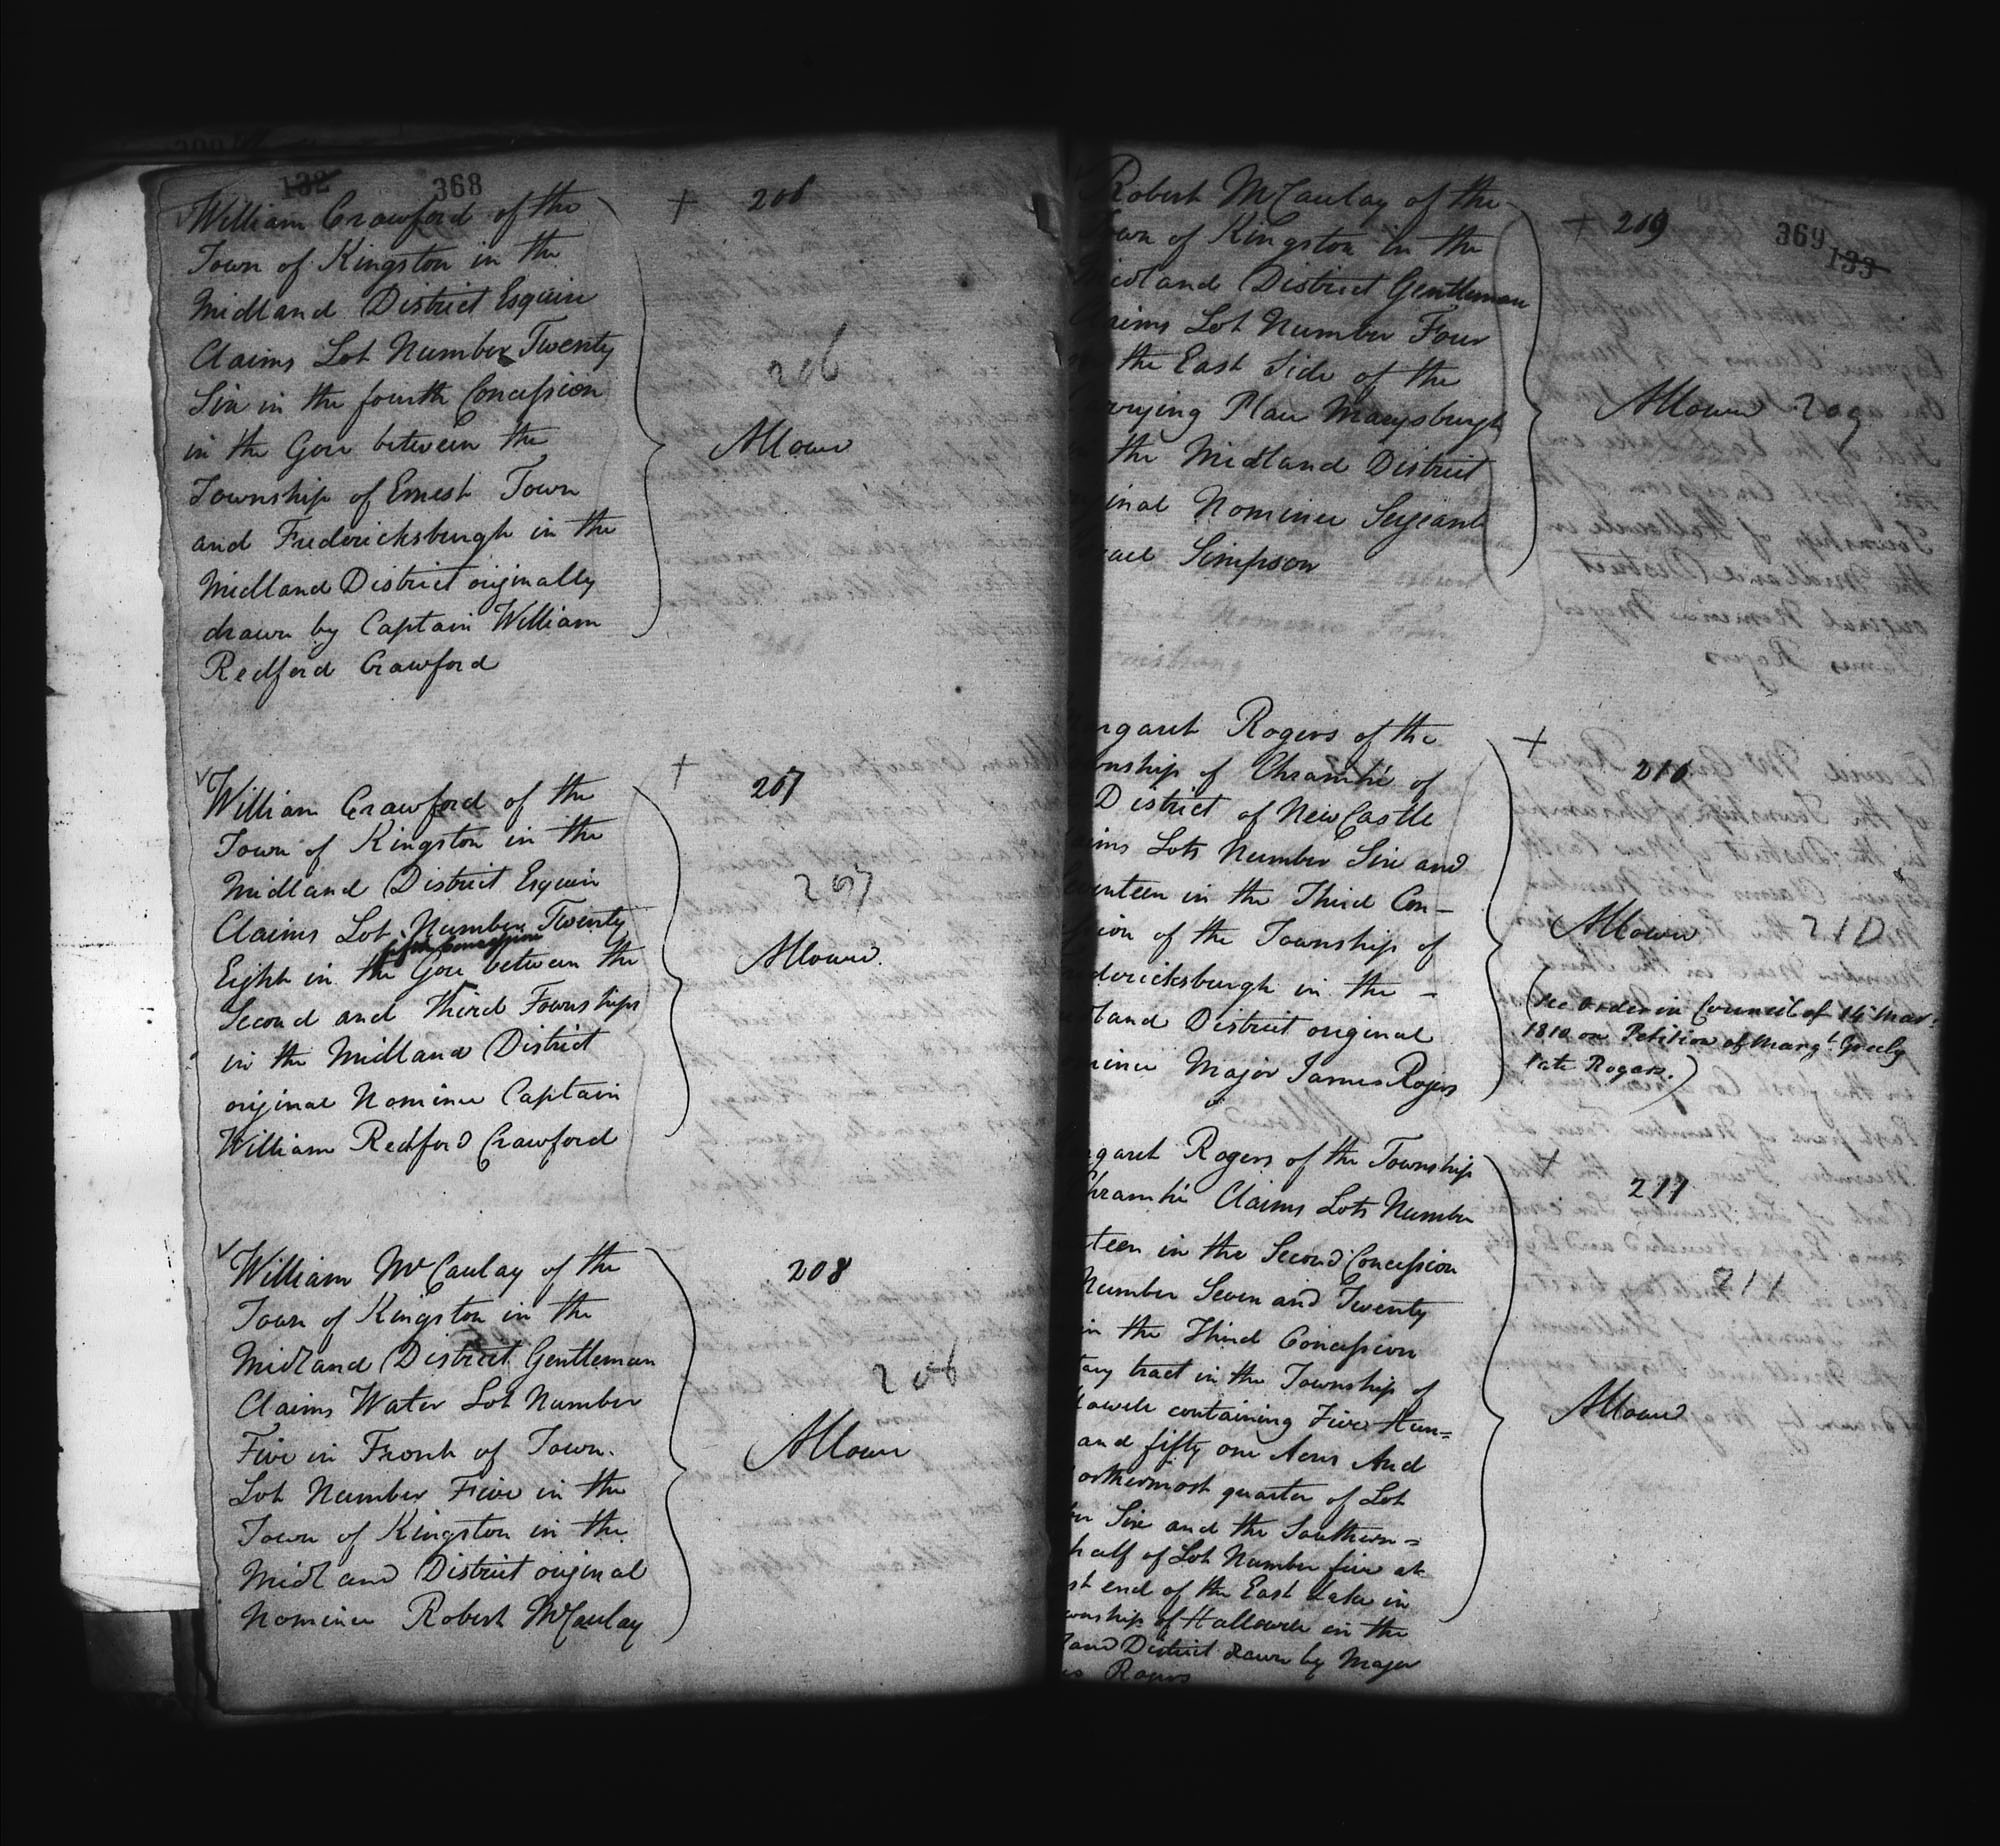 132 368
William Crawford of the + 206
Town of Kingston in the
Midland District Esquire
Claims Lot Number Twenty
Six in the fourth Concession 206
in the Gore between the Allowed
Township of Ernest Town
and Fredericksburgh in the
Midland District originally
drawn by Captain William
Redford Crawford
William Crawford of the + 207
Town of Kingston in the
Midland District Esquire
Claims Lot Number Twenty 207
fifth Concession
Eight in the Gore between the Allowed.
Second and third Townships
in the Midland District
original Nominee Captain
William Redford Crawford
William McCaulay of the 208
Town of Kingston in the
Midland District Gentleman
Claims Water Lot Number 208
Five in Front of Town
Lot Number Five in the Allowed
Town of Kingston in the
Midland District original
Nominee Robert McCaulay
369 133
Robert McCaulay of the + 209
Town of Kingston in the
Midland District Gentleman
Claims Lot Number Four
the East Side of the
rrying Place Marysburgh Allowed 209
the Midland District
inal Nominee Sergeant
rael Simpson
rgaret Rogers of the +
wnship of Chramhé of 210
District of New Castle
ims Lots Number Six and
venteen in the Third Con-
sion of the Township of Allowed 210
dericksburgh in the -
land District original
minee Major James Rogers
(See order in Council of 14 Mar.
1810 on Petition of Margt. Greely
late Rogers.)
rgaret Rogers of the Township +
Chramhé Claims Lots Number 211
teen in the Second Concession
Number Seven and Twenty 211
in the Third Concession
tary tract in the Township of
lowell containing Five Hun=
and fifty one Acres And Allowed
orthermost quarter of Lot
er Six and the Southern=
half of Lot Number five at
st end of the East Lake in
wnship of Hallowell in the
land District drawn by Major
es Rogers